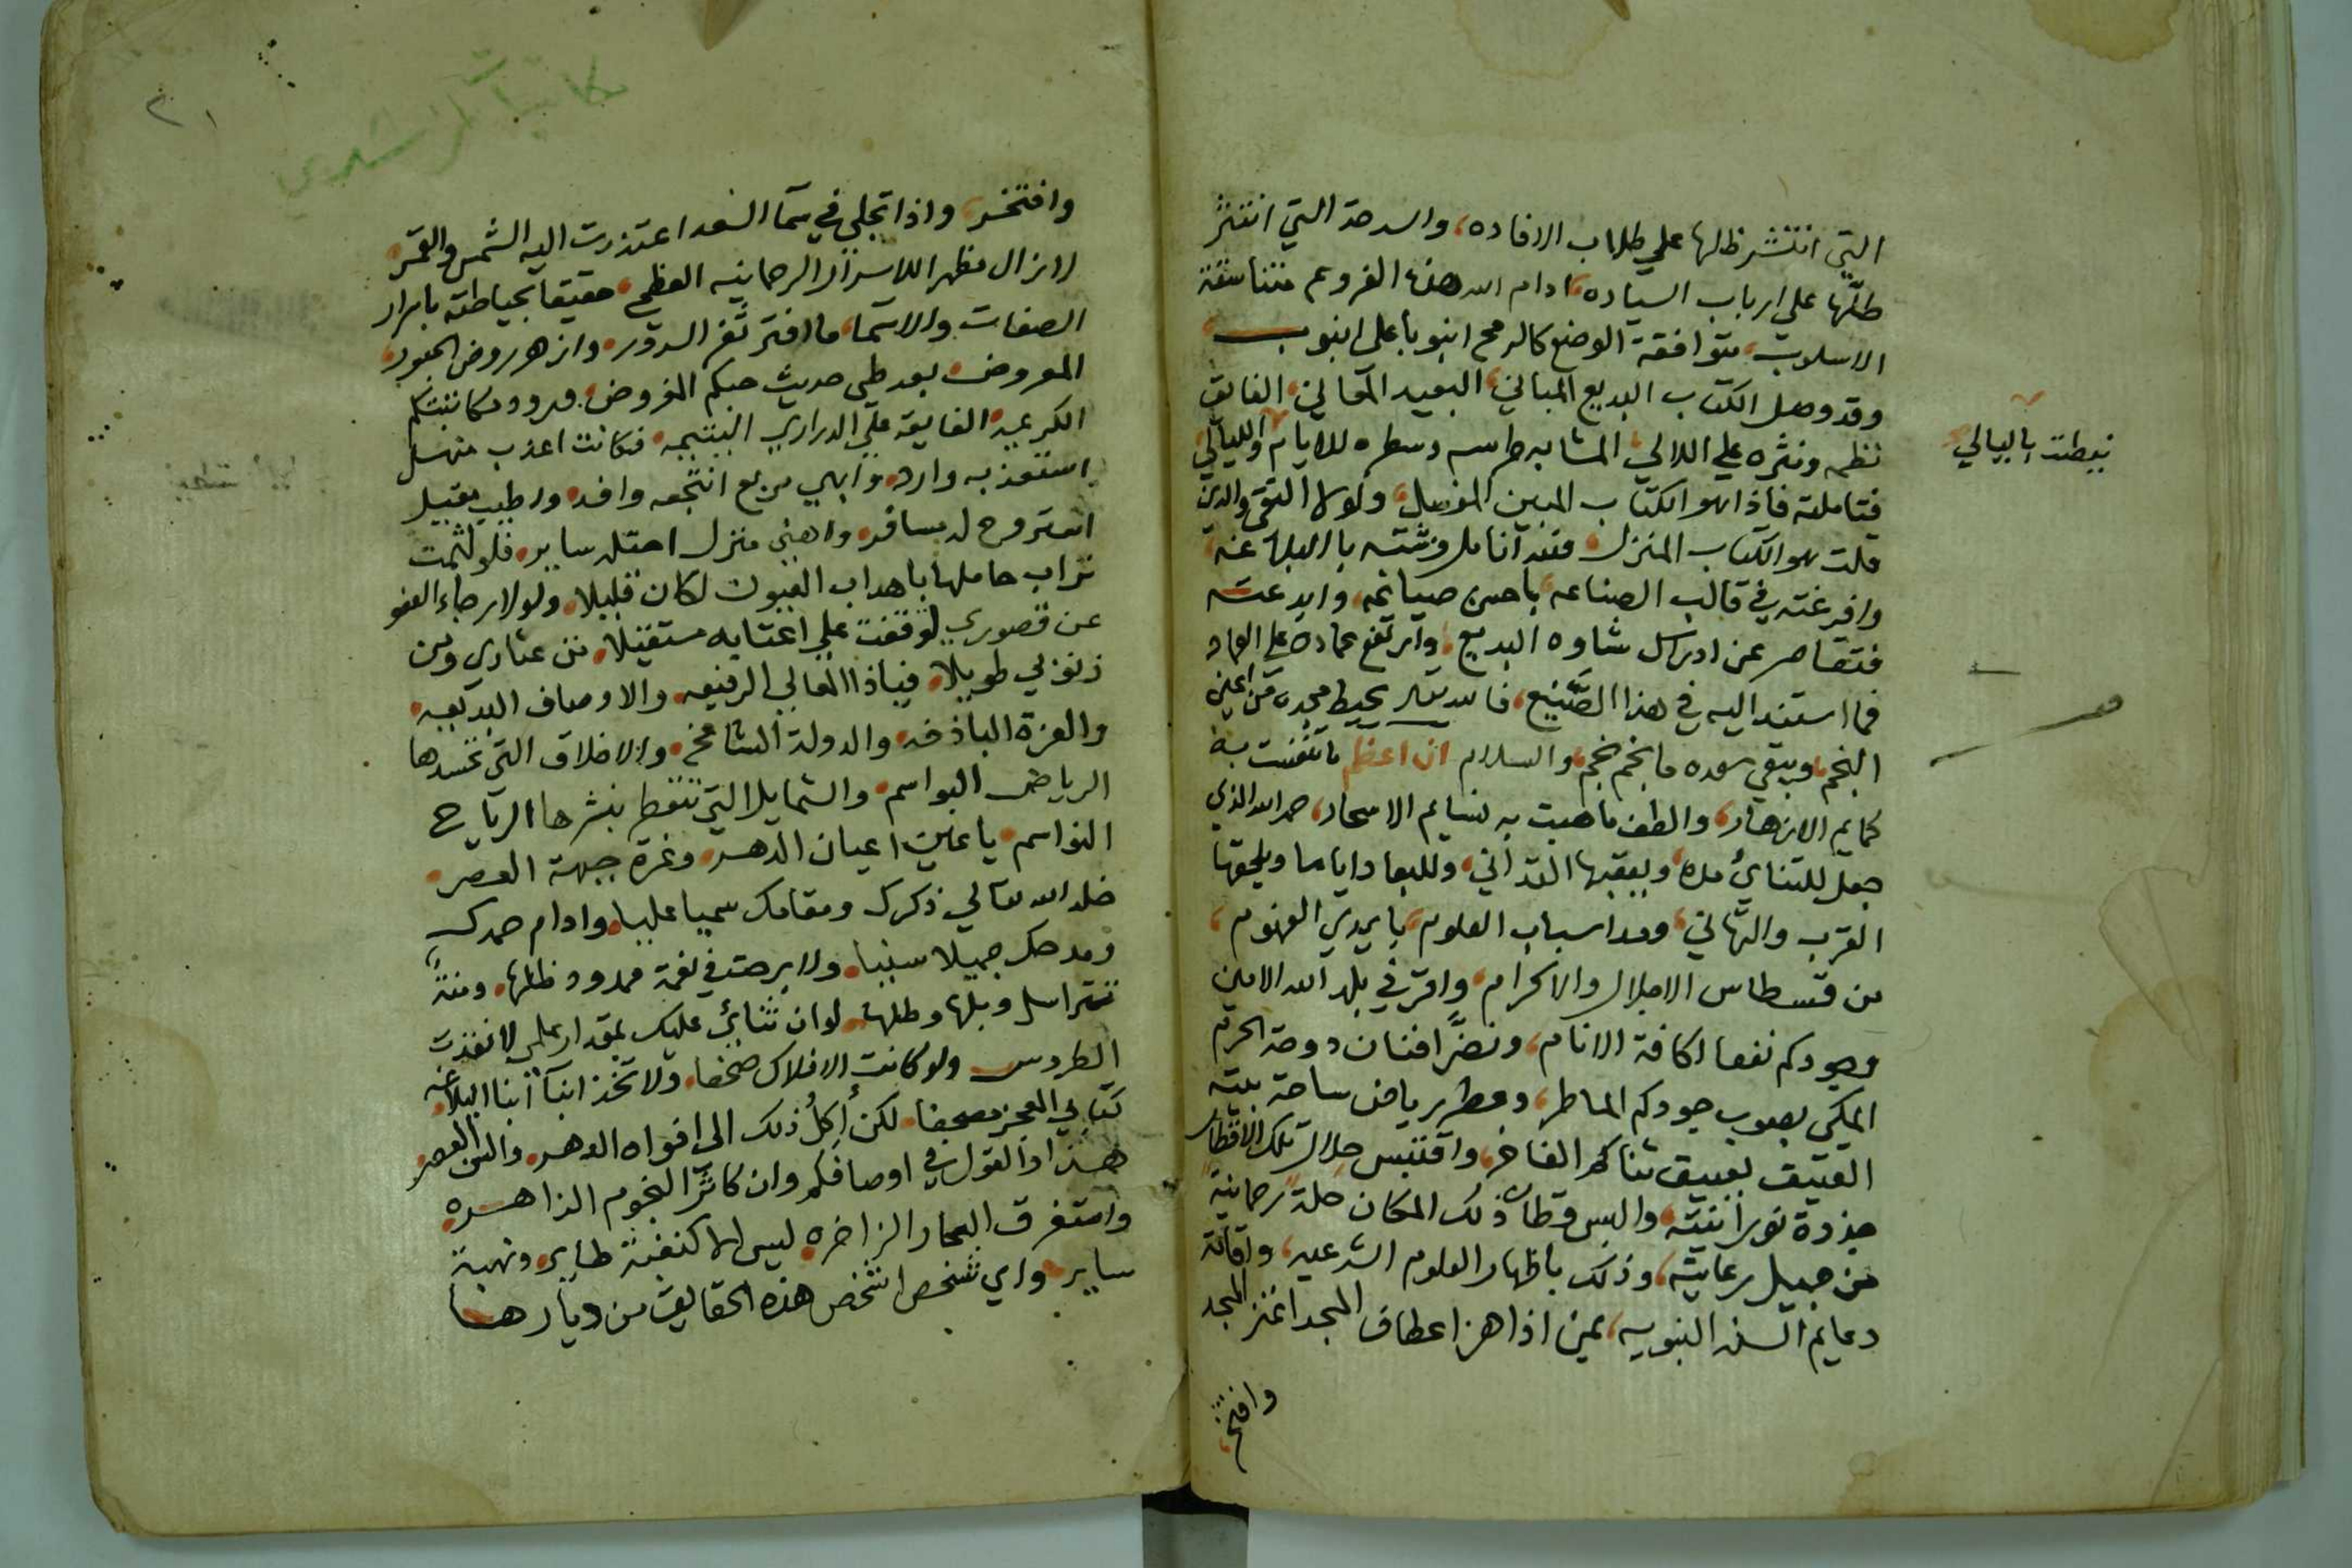 التي انتشر ظلها علي طلاب الافاده، والسرحة التي انتثر
طلّها على ارباب السياده، ادام الله هذه الفروع متناسقة
الاسلوب، متوافقة الوضع كالرمح انبوبا على انبوب
وقد وصل الكتاب البديع المباني، البعيد المعاني، الفايق
نظمه ونثره علي اللالي، المشابه طرسه وسطره للايام والليالي
فتاملته فاذا هو الكتاب المبين المفصل، ولولا التقى والدين
قلت هو الكتاب المنزل، فقد انامل وشته بالبلاغة
وافرغته في قالب الصناعه، باحسن صياغه، وابدعته
فتقاصر عن ادراك شاوه البديع، وارتفع عماده على العماد
فما استند اليه في هذا الصَّنيع، فالله تعالى يحيط مجده من اعين
النجم، ويبقي سعده ما نجم نجم، والسلام ان اعظم ما تفتقت به
كمايم الازهار، والطف ما هبت به نسايم الاسحار، حمد الله الذي
جعل للتنائي مدة، ويعقبها التداني، وللبعاد اياما ويلحقها
القرب والتهاني، ومد اسباب العلوم، بايدي الفهوم،
من قسطاس الاجلال والاكرام، واقر في بلد الله الامين
وجودكم نفعا لكافة الانام، ونضَّر افنان دوحة الحرم
المكي بصوب جودكم الماطر، وعطر رياض ساحة بيته
العتيق بعبيق ثناكم الفاخر، واقتبس خلال تلك الاقطار
جذوة نورانية، والبس قطان ذلك المكان حلة رحمانية
من جميل رعايته، وذلك باظهار العلوم الشرعيه، واقامة
دعايم السنه النبويه، بمن اذا هز اعطاف المجد اغتز المجد
وافتخر
نيطت بالليالي
٢١
مكاتبات المرشدي
وافتخر، واذا تجلي في سما السعد اعتذرت اليه الشمس والقمر
لا زال مظهر اللاسرار الرحمانيه العظمي، حقيقا بحياطته باسرار
الصفات والاسما، ما افتر ثغر السرور، وازهر روض الحبور
المعروض بعد طي حديث حبكم المفروض، ورود مكاتبتكم
الكريمه، الفايقة على الدراري اليتيمه، فكانت اعذب منهل
استعذبه وارد، وابهي مربع انتجعه وافد، واطيب مقيل
استروح له مسافر، واهني منزل احتله ساير، فلو لثمت
تراب حاملها باهداب العيون لكان قليلا، ولولا رجاء العفو
عن قصوري لوقفت علي اعتابه مستقيلا، من عثاري ومن
ذنوبي طويلا، فياذا المعالي الرفيعه، والاوصاف البديعيه
والعزة الباذخه، والدولة الشامخه، والاخلاق التي تحسدها
الرياض البواسم، والشمايل التي تتعطر بنشرها الرياح
النواسم، ياعين اعيان الدهر، وغرة جبهة العصر
خلد الله تعالي ذكرك ومقامك سميا عليا، وادام حمدك
ومدحك جميلا سنيا، ولا برحت في نعمة ممدود ظلها، ومنة
تتراسل وبلها وطلها، لو ان ثنائي عليك بمقدار علمي لانفذت
الطروس ولو كانت الافلاك صحفا، ولاتخذ ابنا ابنا البلاغه
كتابي المعجز مصحفا، لكن أكِلُ ذلك الى افواه الدهر، والسن العصر
هذا والقول في اوصافكم وان كاثر النجوم الزاهره
واستغرق البحار الزاخره ليس الا كنغبة طاير، ونهبة
ساير، واي شخص اشخص هذه الحقايق من ديارها